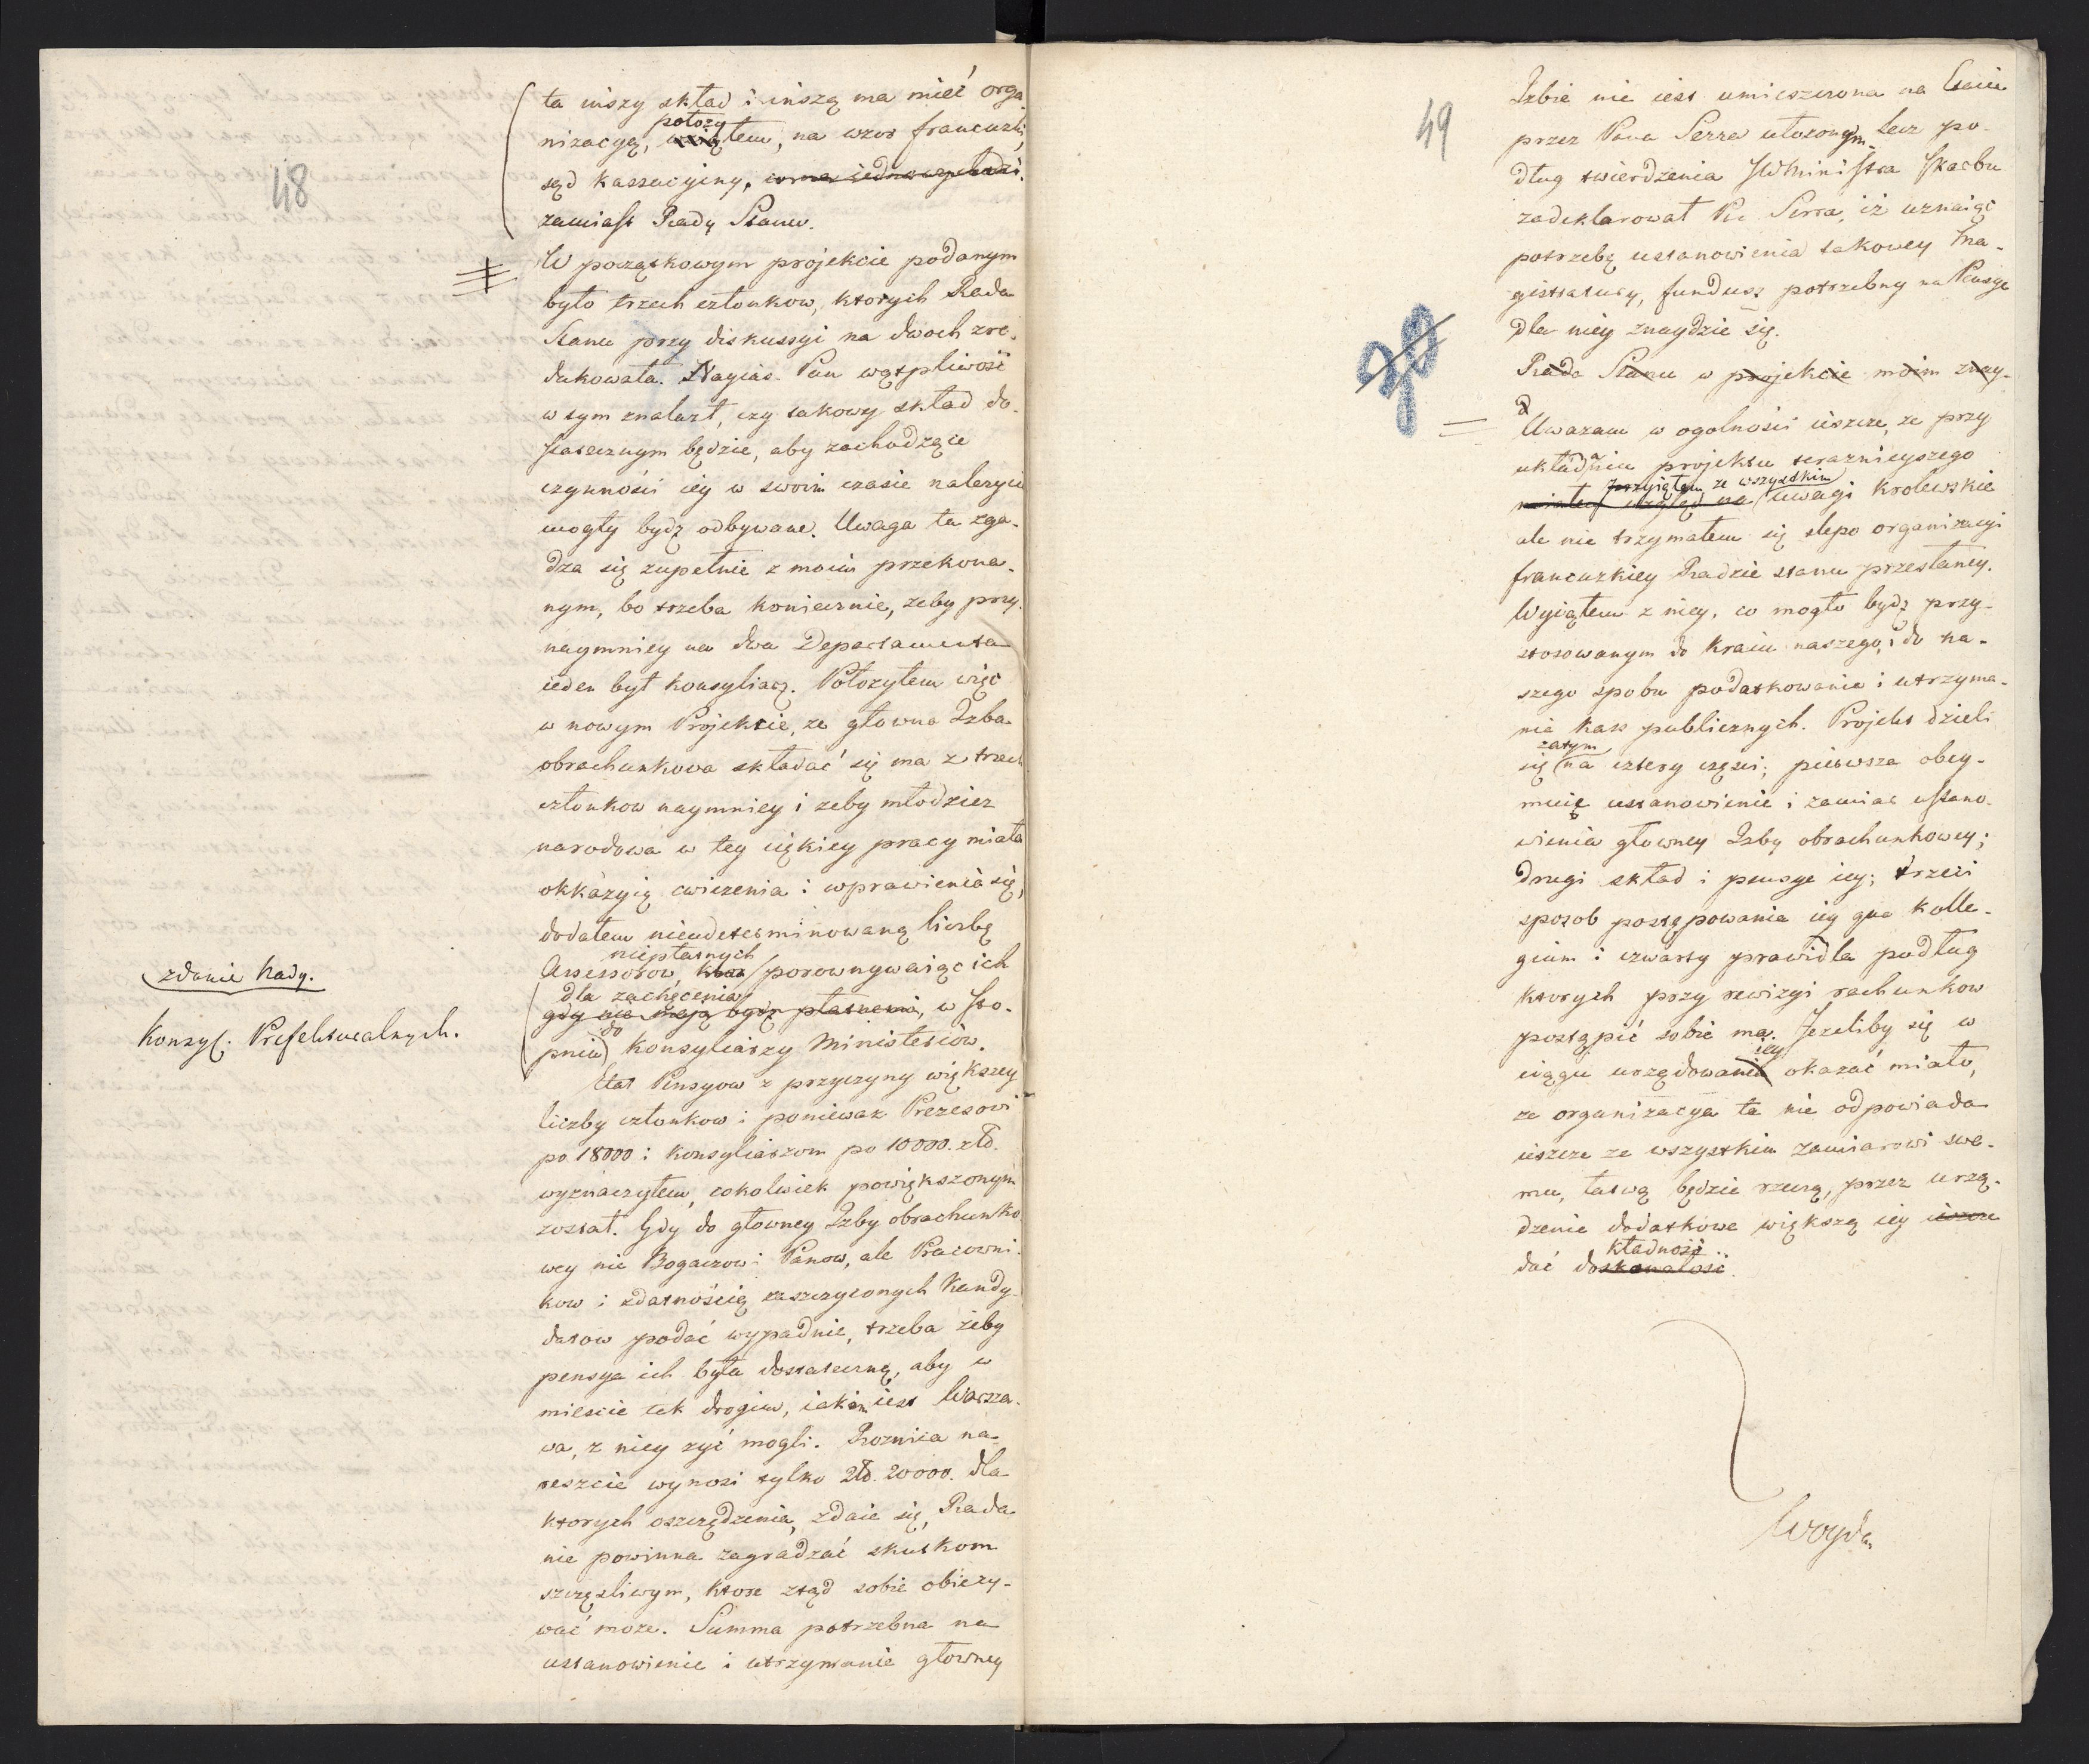 48
ta inszy skład i inszą ma mieć orga-
położy
nizacyą, wziąłem, na wzor francuzki,
sąd kassacyiny,
zamiast Rady Stanu.
W początkowym projekcie podanym
było trzech członkow, ktorych Rada
Stanu przy diskussyi na dwoch zre-
dukowała. Nayias. Pan wątpliwość
w tym znalazł, czy takowy skład do-
statecznym będzie, aby zachodzące
czynności iey w swoim czasie należycie
mogły bydz odbywane. Uwaga ta zga-
dza się zupełnie z moim przekona-
nym, bo trzeba koniecznie, żeby przy-
naymniey na dwa Departamenta
ieden był konsyliarz. Położyłem więc
w nowym Projekcie, że głowna Izba
obrachunkowa składać się ma z trzech
członkow naymniey i żeby młodzież
narodowa w tey ciękiey pracy miała
okkazyią cwiczenia i wprawienia się,
dodałem nieudeterminowaną liczbę
niepłatnych
Assessorow, porownywaiąc ich
dla zachęcenia
gdy nie maią bydz płatnemi, w sto-
do
pniu konsyliarzy Ministeriow.
zdanie Rady.
Konsyl. Prefekturalnych.
Etat Pensyow z przyczyny większey
liczby członkow i ponieważ Prezesowi
po 18000 i konsyliarzom po 10000. złd.
wyznaczyłem, cokolwiek powiększonym
został. Gdy do głowney Izby obrachunko-
wey nie Bogaczow i Panow, ale Pracowni-
kow i zdatnością zaszczyconych Kandy-
datow podać wypadnie, trzeba żeby
pensya ich była dostateczną, aby w
mieście tak drogim, iakim iest Warsza-
wa, z niey żyć mogli. Roznica na-
reszcie wynosi tylko Złd. 20000. dla
ktorych oszczędzenia, zdaie się, Rada
nie powinna zagradzać skutkom
szczęśliwym, ktore ztąd sobie obiecy-
wać może. Summa potrzebna na
ustanowienie i utrzymanie głowney
49
Izbie nie iest umieszczona na Etacie
przez Pana Serra ułożonym. Lecz po-
dług twierdzenia JW Ministra Skarbu
zadeklarował Pn Serra, iż uznaiąc
potrzebę ustanowienia takowey Ma-
gistratury, fundusz potrzebny na Pensye
dla niey znaydzie się.
Rada Stanu w projekcie moim znay-
d
Uważam w ogolności ieszcze, że przy
układaniu projektu teraznieyszego
przyiąłem ze wszystkim
miałem wzgląd na uwagi Krolewskie
ale nie trzymałem się slepo organizacyi
francuzkiey Radzie stanu przesłaney.
Wyiąłem z niey, co mogło bydz przy-
stosowanym do Kraiu naszego, i do na-
szego spobu podatkowania i utrzyma-
nia kass publicznych. Projekt dzieli
zatym
się na cztery części; pierwsza obey-
muię ustanowienie i zamiar ustano-
wienia głowney Izby obrachunkowey;
drugi skład i pensye iey; trzeci
sposob postępowania iey qua Kolle-
gium i czwarty prawidła podług
ktorych przy rewizyi rachunkow
postąpić sobie ma. Jeżeliby się w
iey
ciągu urzędowania okazać miało,
że organizacya ta nie odpowiada
ieszcze ze wszystkim zamiarowi swe-
mu, łatwą będzie rzeczą, przez urzą-
dzenie dodatkowe większą iey ieszcze
kładność
dać doskonałość.
Woyda